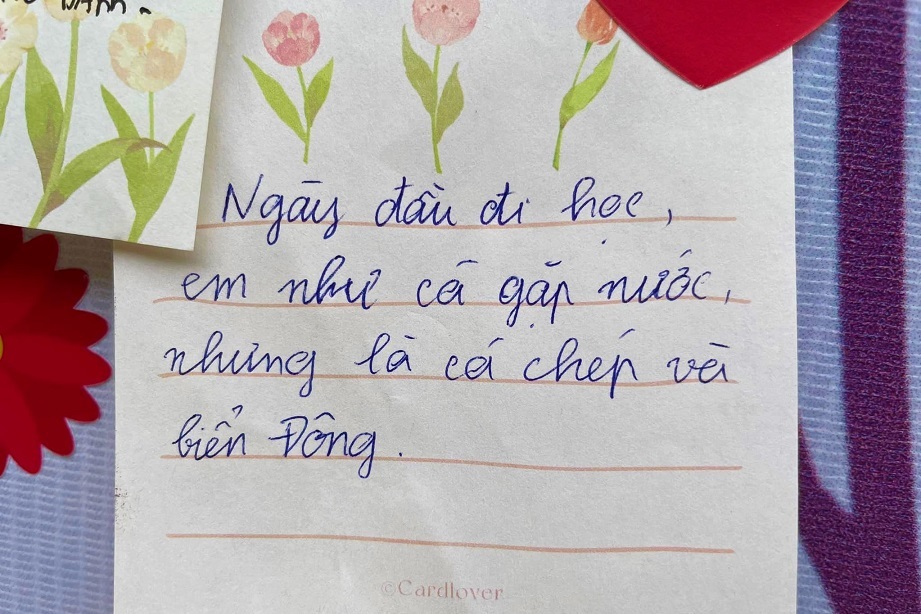 Ngày đầu đi học,
em như cá gặp nước,
nhưng là cá chép và
biển Đông.
©Cardlover